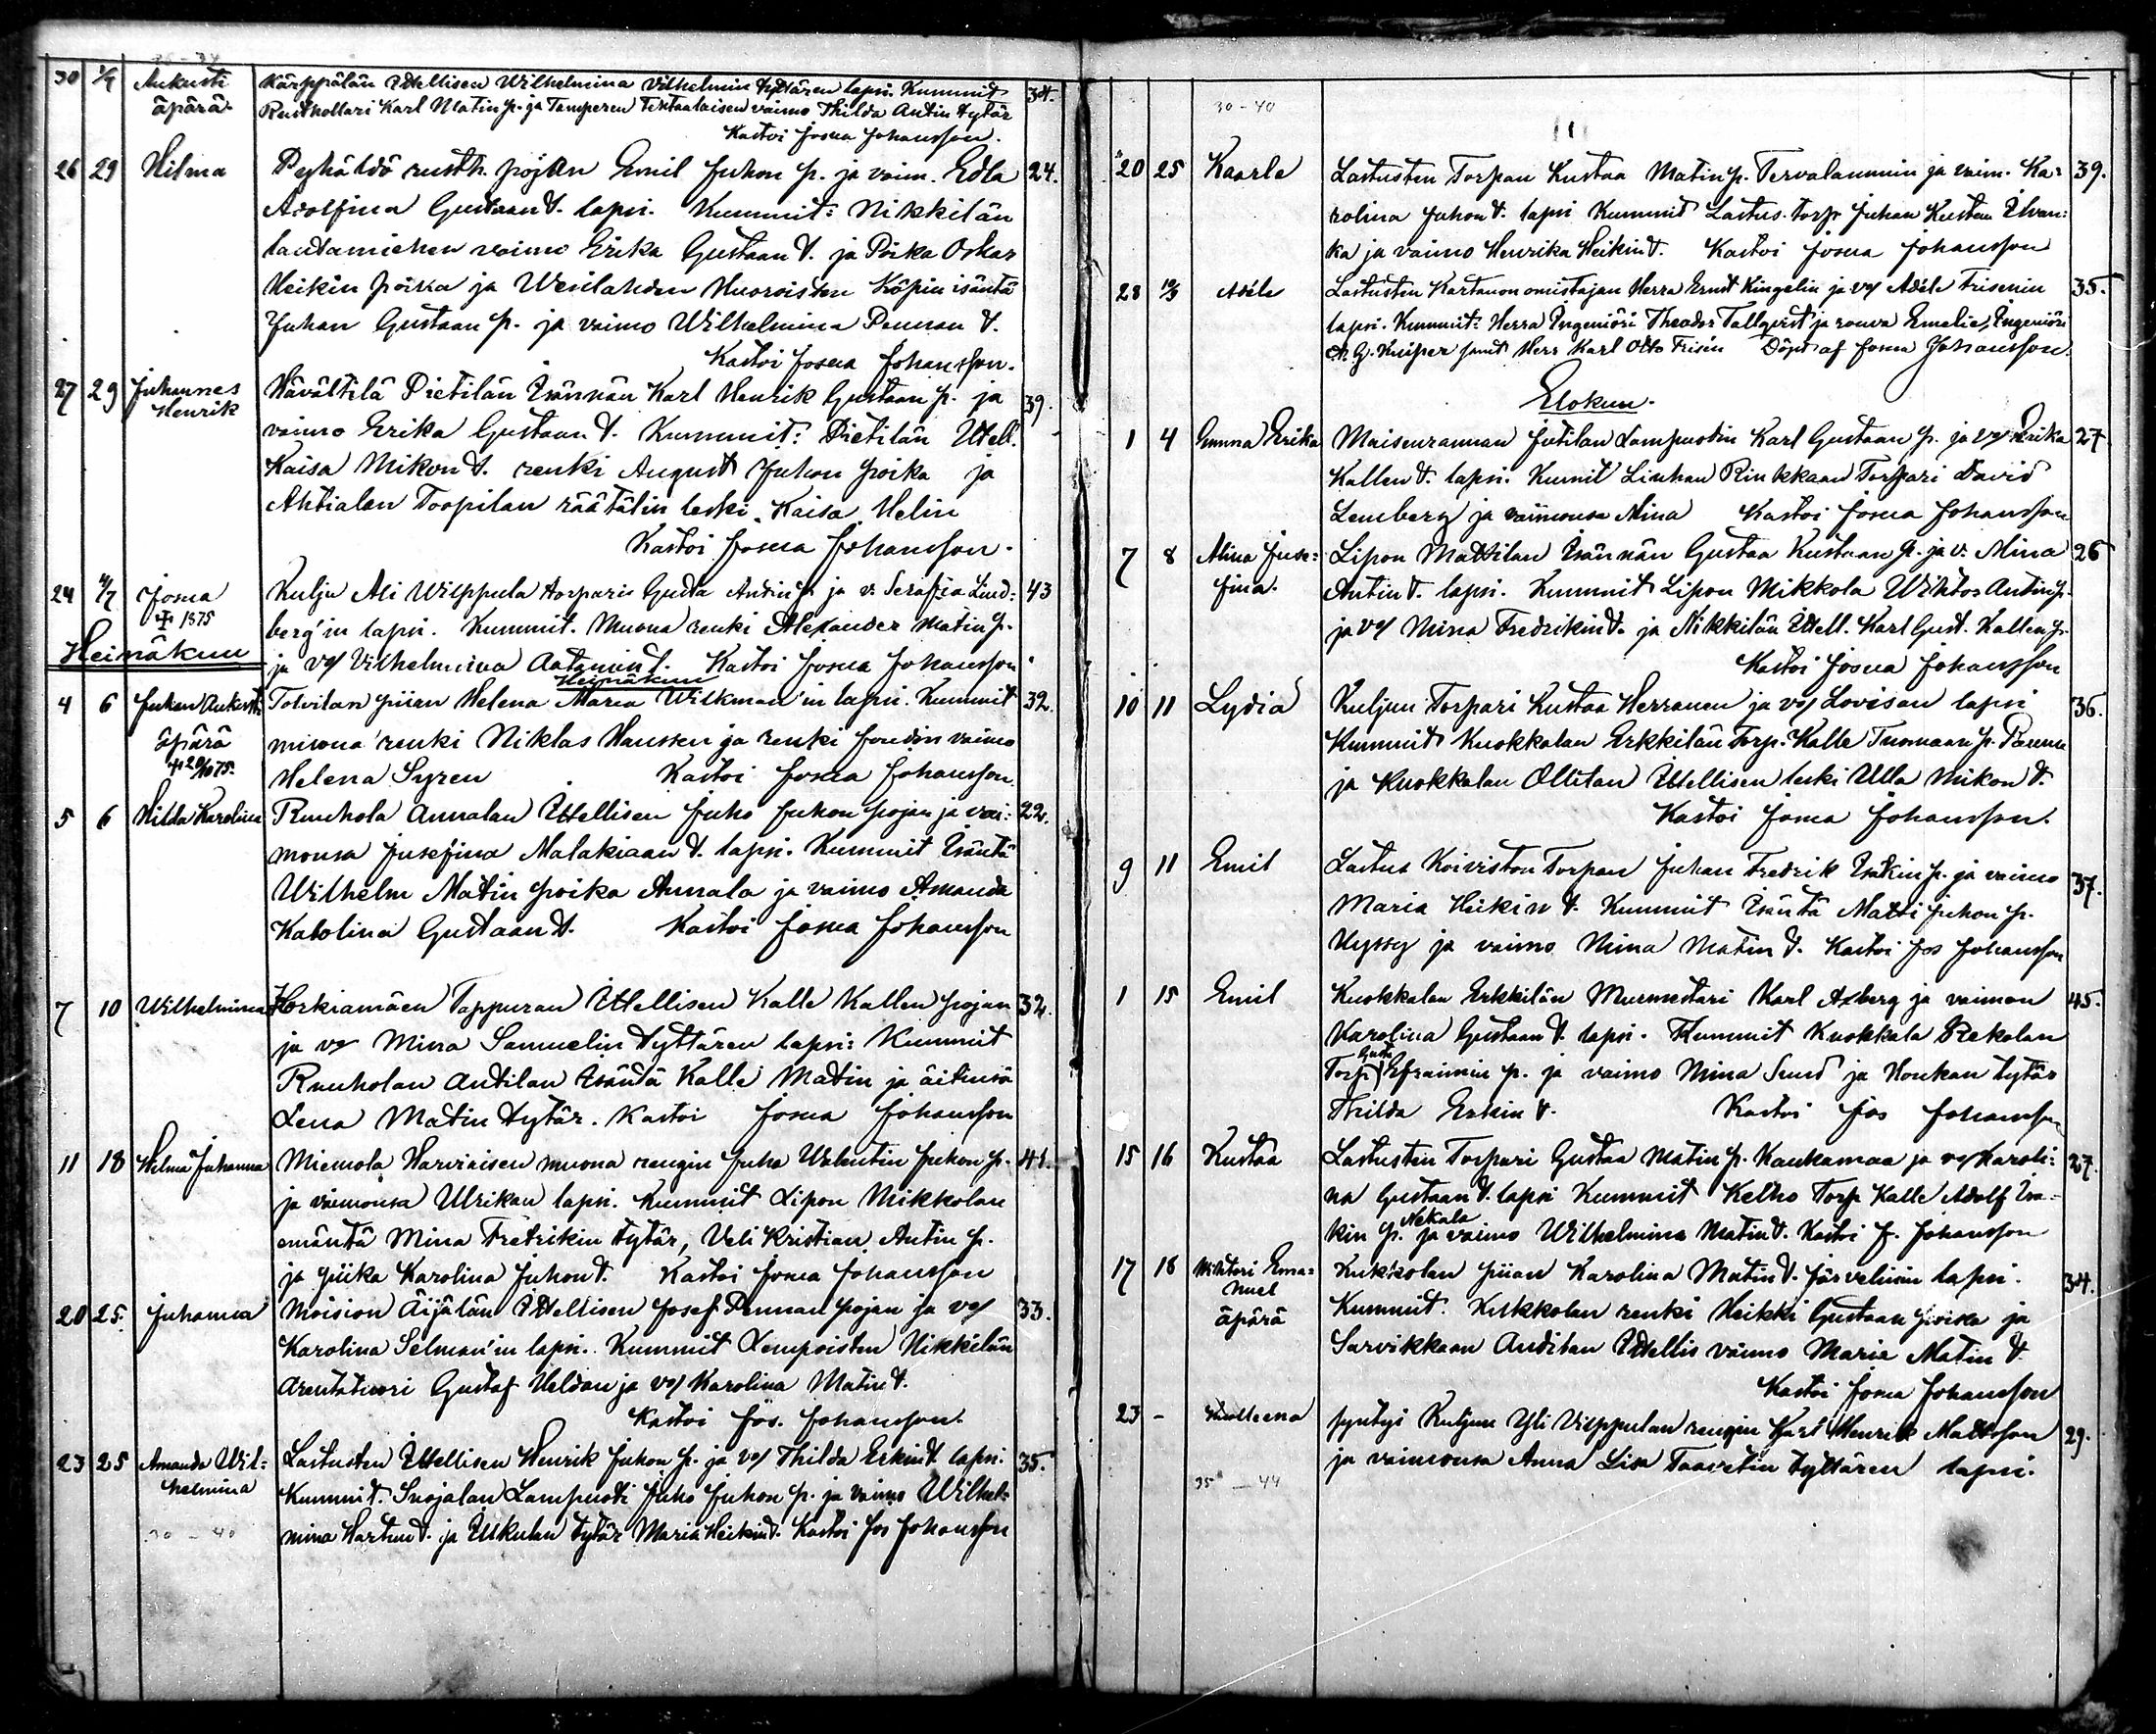 30 1/7 Aukusti Kärppälän Itellisen Wilhelmina Vilhelmin tyttären lapsi. Kummit 34.
äpärä Rusthollari Karl Matin p. ja Tamperen Tehtaalaisen vaimo Thilda Antin tytär
Kastoi Josua Johansson.
26 29 Hilma Pyhältö rusth. pojan Emil Juhon p. ja vaim. Edla 24.
Adolfina Gustaan t. lapsi. Kummit: Nikkilän
lautamiehen vaimo Erika Gustaan t. ja Poika Oskar
Heikin poika ja Wesilahden Huoroisten Köpin isäntä
Juhan Gustaan p. ja vaimo Wilhelmina Pennan t.
Kastoi Josua Johansson.
27 29 Juhannes Hävältilä Pietilän Isännän Karl Henrik Gustaan p. ja 39.
Henrik vaimo Erika Gustaan t. Kummit: Pietilän Itell.
Kaisa Mikon t. renki August Juhon poika ja
Ahtialan Toopilan räätälin leski Kaisa Helin
Kastoi Josua Johansson.
24 4/7 Josua Kulju Ali Wilppula torpari Gusta Antin p. ja v. Serafia Lind= 43
1875 berg'in lapsi. Kummit. Muona renki Alexander Matin p.
Heinäkuu ja v. Vilhelmiina Aatamin t. Kastoi Josua Johansson
Heinäkuu
4 6 Juhan Aukusti Toivilan piian Helena Maria Wilkman'in lapsi. Kummit 32.
äpärä muona renki Niklas Hanssen ja renki vaimo
20/10 75. Helena Syren Kastoi Josua Johansson.
5 6 Hilda Karolina Ruuhola Annalan Itellisen Juho Juhon pojan ja vai= 22.
monsa Jusefina Malakiaan t. lapsi. Kummit Isäntä
Wilhelm Matin poika Annala ja vaimo Amanda
Karolina Gustaan t. Kastoi Josua Johansson
7 10 Wilhelmina Herkiamäen Tappuran Itellisen Kalle Kallen pojan 32.
ja v. Mina Samuelin tyttären lapsi: Kummit
Ruuholan Antilan Isäntä Kalle Matin ja äitinsä
Lena Matin tytär. Kastoi Josua Johansson
11 18 Helma Juhanna Miemola Harviaisen muona rengin Juha Walentin Juhon p. 41.
ja vaimonsa Ulrikan lapsi. Kummit Lipon Mikkolan
emäntä Mina Fredrikin tytär, Veli Kristian Antin p.
ja piika Karolina Juhon t. Kastoi Josua Johansson
20 25. Juhanna Moision Äijälän Itellisen Josef Pennan pojan ja v. 33.
Karolina Selman'in lapsi. Kummit Lempoisten Nikkilän
arentatuori Gustaf Heldan ja v. Karolina Matin t.
Kastoi Jos. Johansson.
23 25 Amanda Wil= Lastusten Itellisen Henrik Juhon p. ja v. Thilda Erkin t. lapsi. 35.
helmina Kummit. Suojalan Lampuoti Juho Juhon p. ja vaimo Wilhel=
30 - 40 mina Hartun t. ja Uskulan tytär Maria Heikin t. Kastoi Jos Johansson
30 - 40
20 25 Kaarle Lastusten Torpan Kustaa Matin p. Tervalammin ja vaim. Ka= 39.
rolina Juhon t. lapsi Kummit Lastus. torp. Juhan Kustaa Ilvan=
ka ja vaimo Henrika Heikin t. Kastoi Josua Johansson
28 10/3 Adéle Lastusten Kartanon omistajan Herra Ernst Kingelin ja v. Adéle Frisenin 35.
lapsi. Kummit: Herra Ingeniöri Theodor Tallqvist ja rouva Emelie, Ingeniöri
A. G. Kniper samt Herr Karl Otto Frisén Döpt af Josua Johansson.
Elokuu.
1 4 Emma Erika Maisenrannan Jutilan Lampuodin Karl Gustaan p. ja v. Erika 27
Kallen t. lapsi. Kumit Linhan Rinkkaan Torpari David
Lemberg ja vaimonsa Mina Kastoi Josua Johansson
7 8 Alina Juse= Lipon Mattilan Isännän Gustaa Kustaan p. ja v. Mina 26
fina. Antin t. lapsi. Kummit Lipon Mikkola Wihtor Antin p.
ja v. Mina Fredrikin t. ja Nikkilän Itell. Karl Gust. Kallen p.
Kastoi Josua Johansson
10 11 Lydia Kuljun Torpari Kustaa Herranen ja v. Lovisan lapsi 36.
Kummit Kuokkalan Erkkilän Torp. Kalle Tuomaan p.
ja Kuokkalan Ollilan Itellisen leski Ulla Mikon t.
Kastoi Josua Johansson.
9 11 Emil Lastus Koiviston Torpan Juhan Fredrik Isakin p. ja vaimo 37.
Maria Heikin t. Kummit Isäntä Matti Juhon p.
Hyssy ja vaimo Mina Matin t. Kastoi Jos Johansson
1 15 Emil Kuokkalan Erkkilän Murmestari Karl Axberg ja vaimon 45.
Karolina Gustaan t. lapsi. Kummit Kuokkala Rekolan
Torp. Gusta Efraimin p. ja vaimo Mina Sund ja Honkan tytär
Thilda Erkin t. Kastoi Jos Johansson
15 16 Kustaa Lastusten Torpari Gustaa Matin p. Kankamaa ja v. Karoli= 27.
na Gustaan t. lapsi Kummit Kelho Torp Kalle Adolf Isa=
kin p. Nekala ja vaimo Wilhelmina Matin t. Kastoi J. Johansson
17 18 Wihtori Ema= Kukkolan piian Karolina Matin t. Järvelinin lapsi. 34.
nuel Kummit. Kukkolan renki Heikki Gustaan poika ja
äpärä Sarvikkaan Anditan Itellis vaimo Maria Matin t.
Kastoi Josua Johansson
23 - Kuolleena syntyi Kuljun Yli Vilppulan rengin Karl Henrik Mattsson 29.
ja vaimonsa Anna Lisa Taavetin tyttären lapsi.
35 - 44